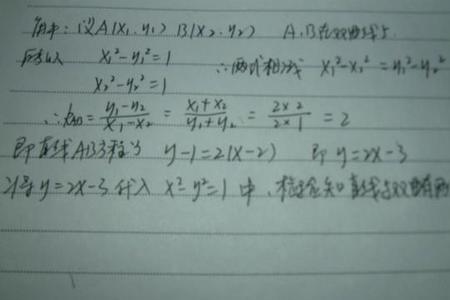 解：设A(x₁,y₁) B(x₂,y₂) A、B在双曲线上
x₁²-y₁²=1 ∴两式相减 x₁²-x₂²=y₁²-y₂²
x₂²-y₂²=1
∴k_AB=\frac{y₁-y₂}{x₁-x₂}=\frac{x₁+x₂}{y₁+y₂}=\frac{2×2}{2×1}=2
即直线AB方程为 y-1=2(x-2) 即y=2x-3
将y=2x-3代入 x²-y²=1 中，检验知直线与双曲线有两